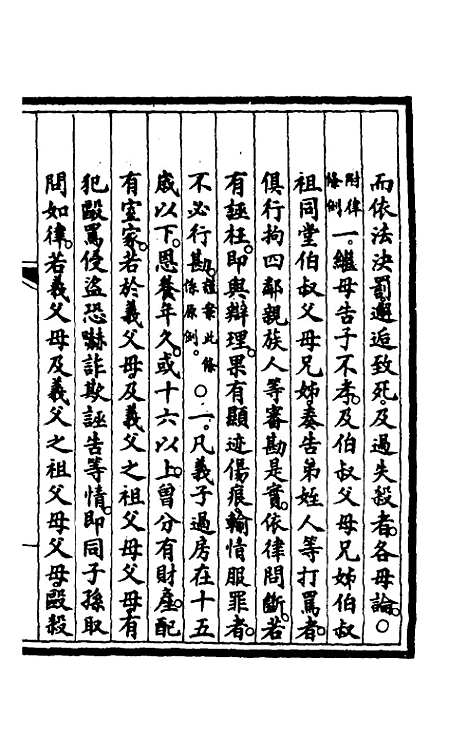 而依法決罰邂逅致死。及過失殺者。各毋論。○
附律條例一。繼母告子不孝。及伯叔父母兄姊伯叔
祖同堂伯叔父母兄姊。奏告弟姪人等打罵者。
俱行拘四鄰親族人等審勘是實。依律問斷。若
有誣枉。即與辯理。果有顯迹傷痕輸情服罪者。
不必行勘。謹案此條係原例。○一。凡義子過房在十五
歲以下。恩養年久。或十六以上。曾分有財產。配
有室家。若於義父母及義父之祖父母父母。有
犯毆罵侵盜恐嚇詐欺誣告等情。即同子孫取
問如律。若義父母及義父之祖父母父母。毆殺